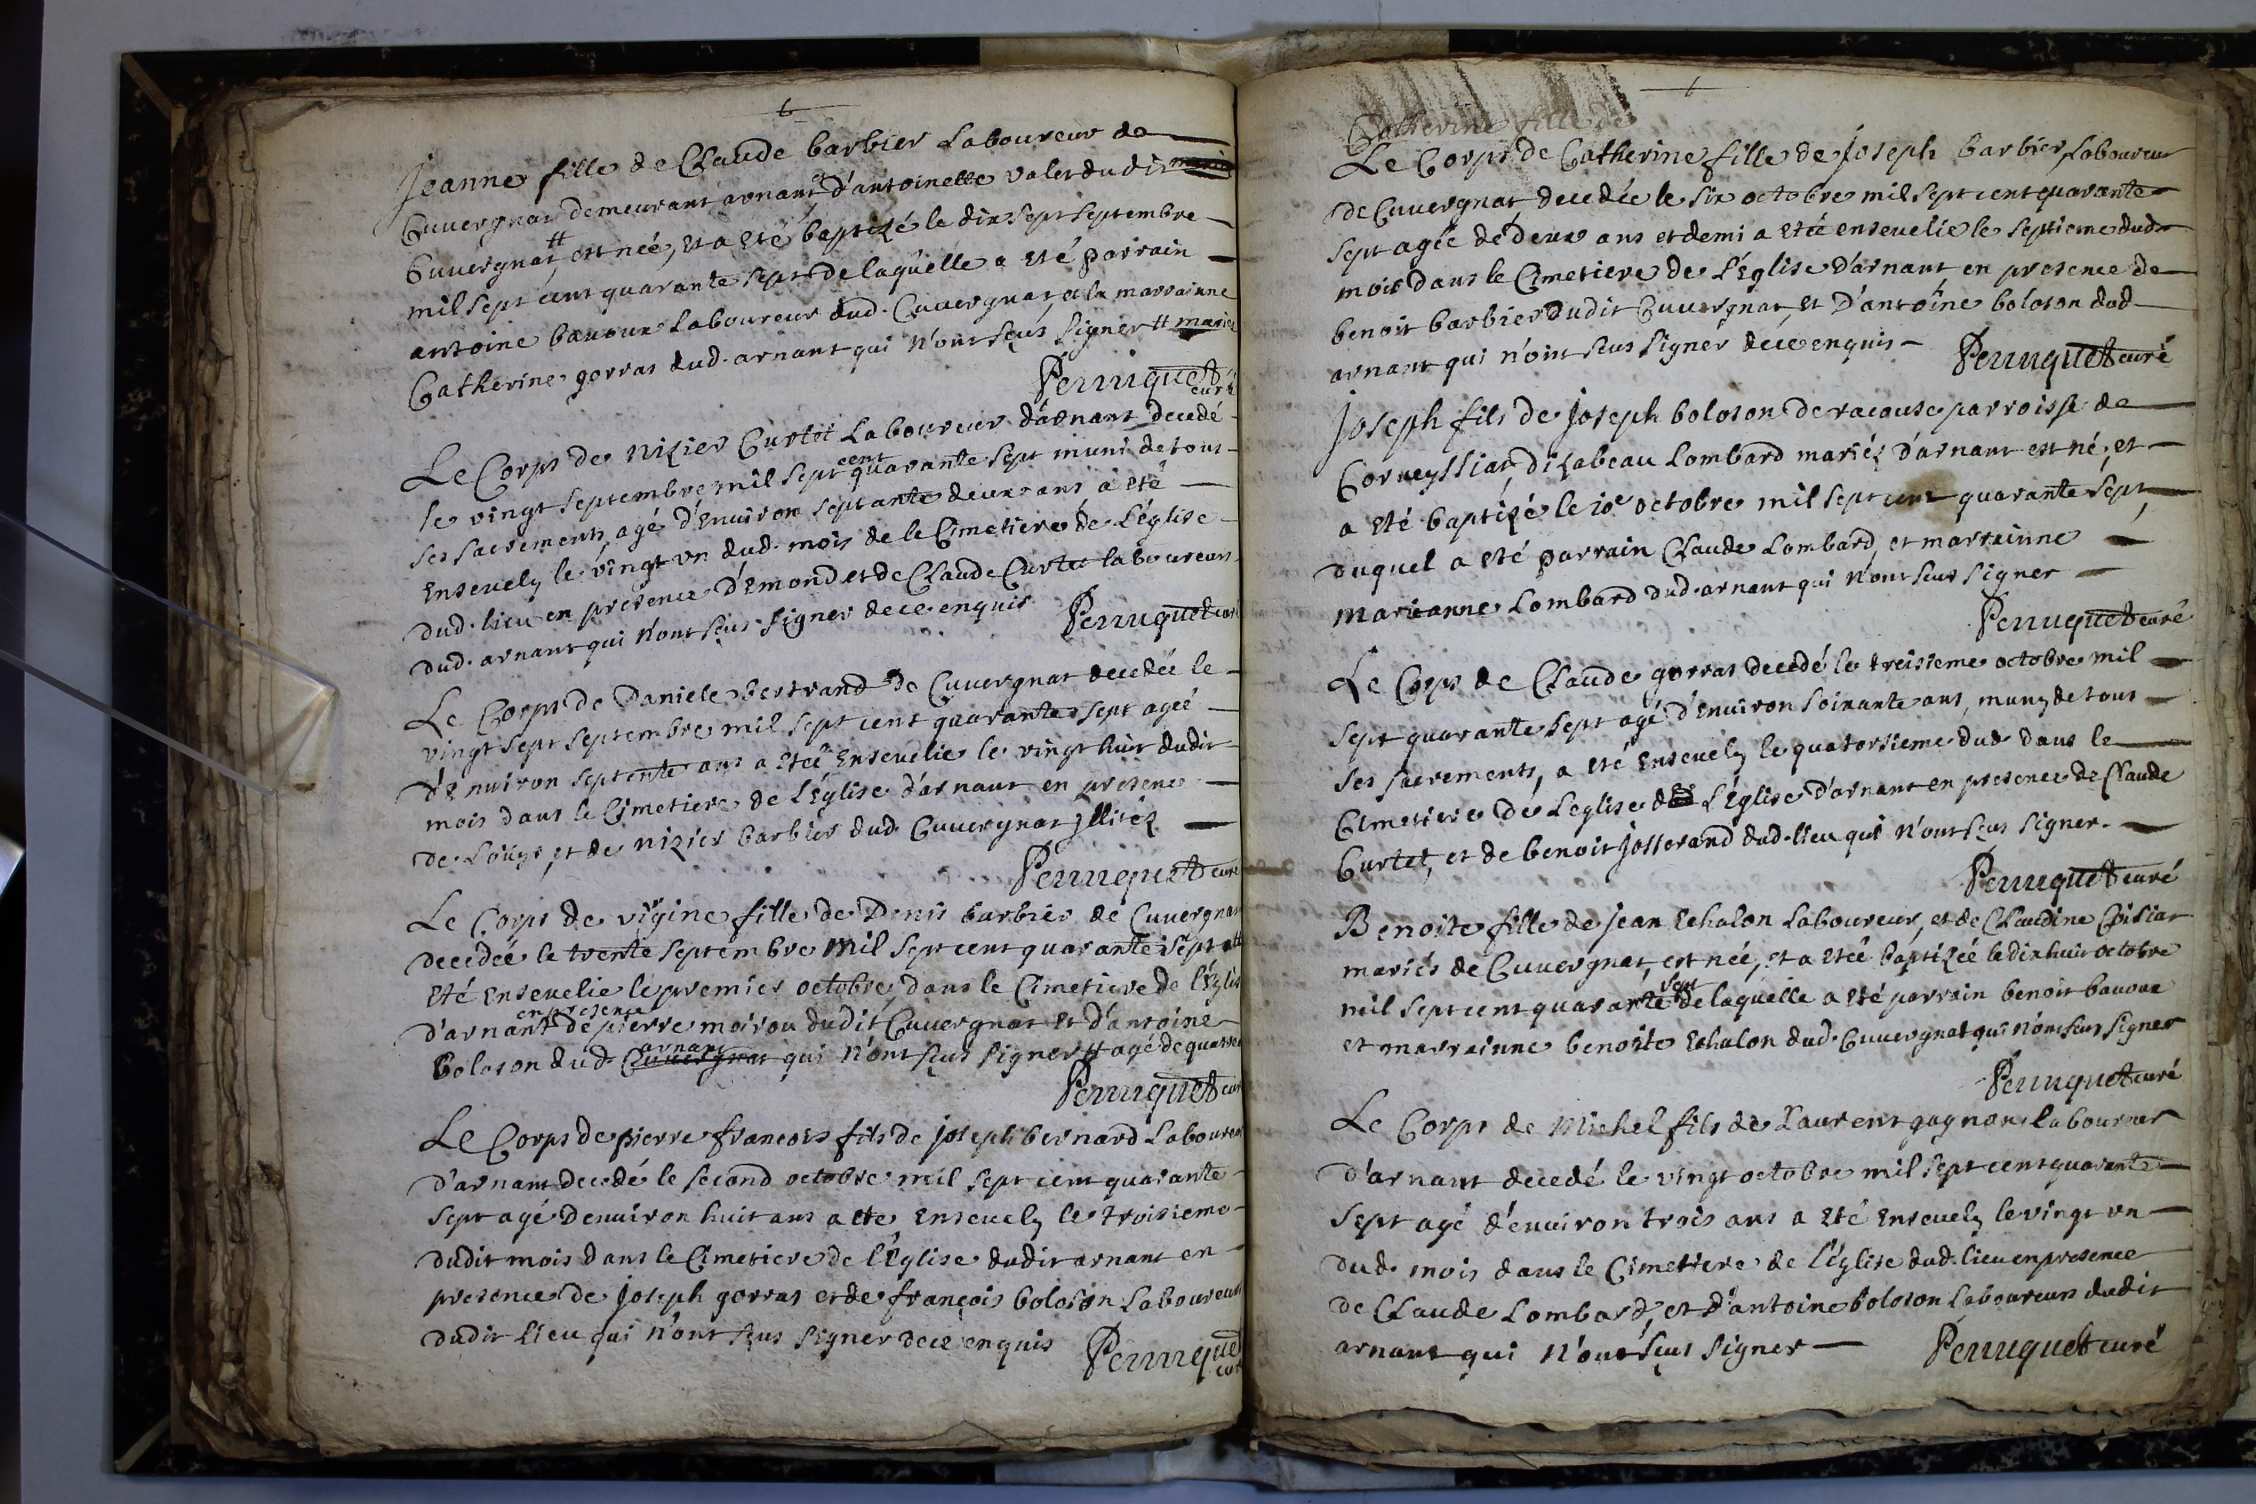 Jeanne fille de Claude barbier Laboureur de
Cuvergnat demeurant arnant et d'antoinette valet dudit
Cuvergnat, # est née, et a eté baptizé le dix sept septembre
mil sept cent quarante sept de laquelle a eté parrain
antoine bavoux Laboureur dud. Cuvergnat, et la marrainne
Catherine gorras dud. arnant qui n'ont sçus signer # mariés
Perruquet curé
Le Corps de nizier Curtet Laboureur d'arnant decedé
le vingt septembre mil sept cent quarante sept muni de tous
ses sacrements, agé d'Environ septante deux ans, a eté
Ensevely le vingt un dud. mois de le Cimetiere de L'église
dud. lieu en presence d'Emond et de Claude Curtet laboureurs
dud. arnant qui n'ont sçus signer de ce enquis
Perruquet curé
Le Corps de Daniele bertrand de Cuvergnat decedée le
vingt sept septembre mil sept cent quarante sept ageé
d'Environ septente ans a eteé Ensevelie le vingt huit dudit
mois dans le Cimetiere de L'Église d'arnant en presence
de Loüys, et de nizier barbier dud. Cuvergnat jllitéz
Perruquet curé
Le Corps de virgine fille de Denis barbier de Cuvergnat
decedeé le trente septembre mil sept cent quarante sept #
eté Ensevelie le premier octobre dans le Cimetiere de l'Églis
d'arnant en presence de pierre moirou dudit Cuvergnat et d'antoine
boloson dud. Cuvergnat arnant qui n'ont sçus signer # agé de quatre
Perruquet curé
Le Corps de pierre francois fils de joseph bernard Laboureur
d'arnant decedé le second octobre mil sept cent quarante
sept agé d'environ huit ans a eté Ensevely le troisieme
dudit mois dans le Cimetiere de l'Église dudit arnant en
presence de joseph gorras et de françois boloson Laboureurs
dudit Lieu qui n'ont sçus signer de ce enquis
Perruquet curé
Catherine fille de
Le Corps de Catherine fille de Joseph barbier Laboureur
de Cuvergnat decedée le six octobre mil sept cent quarante
sept agée de deux ans et demi a eteé ensevelie le septieme dud.
mois dans le Cimetiere de L'Église d'arnant, en presence de
benoit barbier dudit Cuvergnat, et D'antoine boloson dud.
arnant qui n'oint sçus signer de ce enquis
Perruquet curé
Joseph fils de Joseph boloson de racouse parroisse de
Corveyssiat, d'izabeau Lombard mariéz d'arnant est né, et
a eté baptizé le 10e octobre mil sept cent quarante sept,
duquel a eté parrain Claude Lombard, et marrainne
marianne Lombard dud. arnant qui n'ont sçus signer
Perruquet curé
Le Corps de Claude gorras decedé le treisieme octobre mil
sept quarante sept agé d'Environ soixante ans, muny de tous
ses sacrements, a eté Ensevely le quatorsieme dud dans le
Cimetiere de Leglise de L'Église d'arnant en presence de Claude
Curtet, et de benoit josserand dud. lieu qui n'ont sçus signer.
Perruquet curé
Benoite fille de jean Echalon Laboureur, et de Claudine
mariés de Cuvergnat, est née, et a eteé baptizée le dix huit octobre
mil sept cent quarante sept de laquelle a eté parrain benoit bavoux
et marrainne benoite Echalon dud. Cuvergnat qui n'ont sçus signer
Perruquet curé
Le Corps de Michel fils de Laurent gagneur laboureur
d'arnant decedé le vingt octobre mil sept cent quarante
sept agé d'environ trois ans a eté Ensevely le vingt un
dud. mois dans le Cimetiere de l'Église dud. lieu en presence
de Claude Lombard, et d'antoine boloson Laboureurs dudit
arnant qui n'ont sçus signer
Perruquet curé